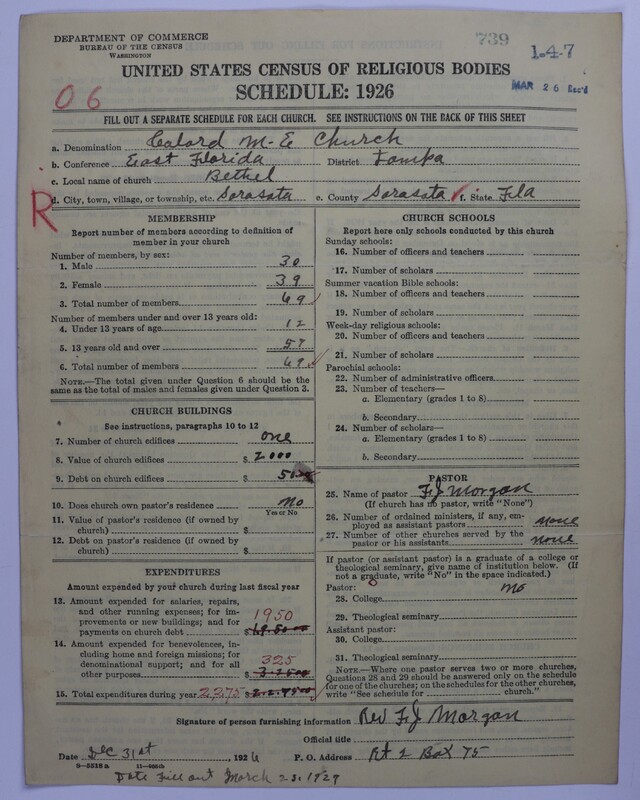 DEPARTMENT OF COMMERCE
BUREAU OF THE CENSUS
WASHINGTON
739
1-4-7
MAR 26 Rec'd
UNITED STATES CENSUS OF RELIGIOUS BODIES
SCHEDULE: 1926
06
FILL OUT A SEPARATE SCHEDULE FOR EACH CHURCH. SEE INSTRUCTIONS ON THE BACK OF THIS SHEET
a. Denomination Colord M-E Church
b. Conference East Florida District Tampa
c. Local name of church Bethel
R
d. City, town, village, or township, etc. Sarasota e. County Sarasota f. State Fla
MEMBERSHIP
Report number of members according to definition of member in your church
Number of members, by sex:
1. Male 30
2. Female 39
3. Total number of members 69
Number of members under and over 13 years old:
4. Under 13 years of age 12
5. 13 years old and over 57
6. Total number of members 69
NOTE.—The total given under Question 6 should be the same as the total of males and females given under Question 3.
CHURCH BUILDINGS
See instructions, paragraphs 10 to 12
7. Number of church edifices one
8. Value of church edifices $ 2000
9. Debt on church edifices $
10. Does church own pastor's residence no
Yes or No
11. Value of pastor's residence (if owned by church) $
12. Debt on pastor's residence (if owned by church) $
EXPENDITURES
Amount expended by your church during last fiscal year
13. Amount expended for salaries, repairs, and other running expenses; for improvements or new buildings; and for payments on church debt 1950 $
14. Amount expended for benevolences, including home and foreign missions; for denominational support; and for all other purposes 325 $
15. Total expenditures during year 2275 $
CHURCH SCHOOLS
Report here only schools conducted by this church
Sunday schools:
16. Number of officers and teachers
17. Number of scholars
Summer vacation Bible schools:
18. Number of officers and teachers
19. Number of scholars
Week-day religious schools:
20. Number of officers and teachers
21. Number of scholars
Parochial schools:
22. Number of administrative officers
23. Number of teachers—
a. Elementary (grades 1 to 8)
b. Secondary
24. Number of scholars—
a. Elementary (grades 1 to 8)
b. Secondary
PASTOR
25. Name of pastor F J Morgan
(If church has no pastor, write "None")
26. Number of ordained ministers, if any, employed as assistant pastors none
27. Number of other churches served by the pastor or his assistants none
If pastor (or assistant pastor) is a graduate of a college or theological seminary, give name of institution below. (If not a graduate, write "No" in the space indicated.)
Pastor: no
28. College
29. Theological seminary
Assistant pastor:
30. College
31. Theological seminary
NOTE.—Where one pastor serves two or more churches, Questions 28 and 29 should be answered only on the schedule for one of the churches; on the schedules for the other churches, write "See schedule for church."
Signature of person furnishing information Rev F J Morgan
Official title
Date Dec 31st, 1926 P. O. Address Rt 2 Box 75
8-5518a
Date Fill out March 23. 1927